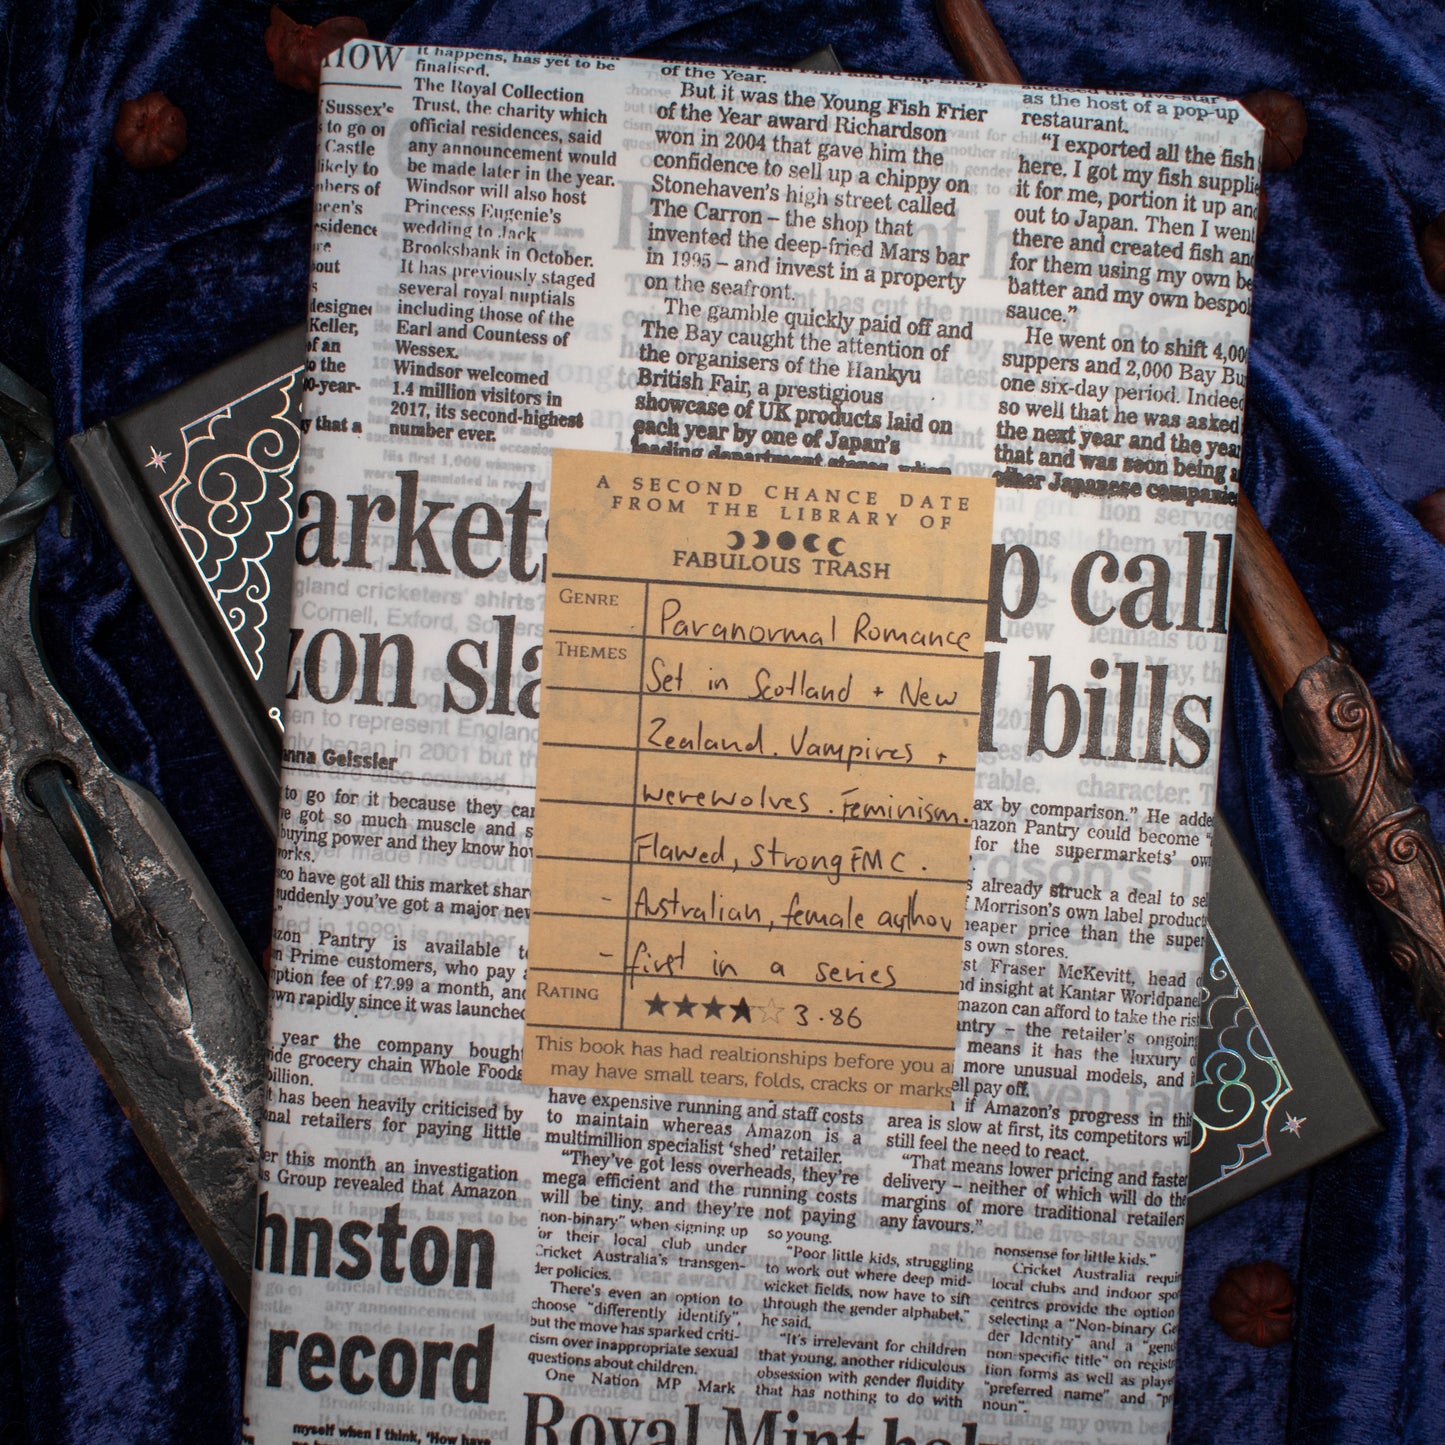 now
Sussex's
to go on
Castle
likely to
designed
Keller,
of an
to the
00-year-
that a
it happens, has yet to be
finalised.
The Royal Collection
Trust, the charity which
official residences, said
any announcement would
be made later in the year.
Windsor will also host
Princess Eugenie's
wedding to Jack
Brooksbank in October.
It has previously staged
several royal nuptials
including those of the
Earl and Countess of
Wessex.
Windsor welcomed
1.4 million visitors in
2017, its second-highest
number ever.
of the Year.
But it was the Young Fish Frier
of the Year award Richardson
won in 2004 that gave him the
confidence to sell up a chippy on
Stonehaven's high street called
The Carron – the shop that
invented the deep-fried Mars bar
in 1995 – and invest in a property
on the seafront.
The gamble quickly paid off and
The Bay caught the attention of
the organisers of the Hankyu
British Fair, a prestigious
showcase of UK products laid on
each year by one of Japan's
leading department stores, when
as the host of a pop-up
restaurant.
"I exported all the fish
here. I got my fish supplie
it for me, portion it up and
out to Japan. Then I went
there and created fish and
for them using my own be
batter and my own bespok
sauce."
He went on to shift 4,00
suppers and 2,000 Bay Bu
one six-day period. Indeed
so well that he was asked
the next year and the year
that and was soon being a
other Japanese companies
arkets
p call
zon sla
l bills
A SECOND CHANCE DATE
FROM THE LIBRARY OF
FABULOUS TRASH
GENRE
Paranormal Romance
THEMES
Set in Scotland + New
Zealand. Vampires +
werewolves. Feminism.
Flawed, strong FMC.
- Australian, female author
- first in a series
RATING
★★★★☆ 3.86
This book has had realtionships before you a
may have small tears, folds, cracks or marks
anna Geissler
to go for it because they can
got so much muscle and s
buying power and they know how
works.
sco have got all this market share
suddenly you've got a major new
zon Pantry is available to
n Prime customers, who pay a
ption fee of £7.99 a month, and
wn rapidly since it was launched
year the company bought
ide grocery chain Whole Foods
billion.
t has been heavily criticised by
nal retailers for paying little
er this month an investigation
s Group revealed that Amazon
ax by comparison." He adde
mazon Pantry could become "
for the supermarkets' own
already struck a deal to sel
f Morrison's own label product
heaper price than the super
s own stores.
st Fraser McKevitt, head o
nd insight at Kantar Worldpanel
mazon can afford to take the risk
antry – the retailer's ongoing
means it has the luxury o
more unusual models, and i
ell pay off.
have expensive running and staff costs
to maintain whereas Amazon is a
multimillion specialist 'shed' retailer.
"They've got less overheads, they're
mega efficient and the running costs
will be tiny, and they're not paying
if Amazon's progress in this
area is slow at first, its competitors will
still feel the need to react.
"That means lower pricing and faster
delivery – neither of which will do the
margins of more traditional retailers
any favours."
hnston
record
myself when I think, 'How have
non-binary" when signing up
for their local club under
Cricket Australia's transgen-
der policies.
There's even an option to
choose "differently identify",
but the move has sparked criti-
cism over inappropriate sexual
questions about children.
One Nation MP Mark
so young.
"Poor little kids, struggling
to work out where deep mid-
wicket fields, now have to sift
through the gender alphabet,"
he said.
"It's irrelevant for children
that young, another ridiculous
obsession with gender fluidity
that has nothing to do with
nonsense for little kids."
Cricket Australia requir
local clubs and indoor spo
centres provide the option
selecting a "Non-binary Ge
der Identity" and a "gend
non-specific title" on registr
tion forms as well as playe
"preferred name" and "p
noun".
Royal Mint hal